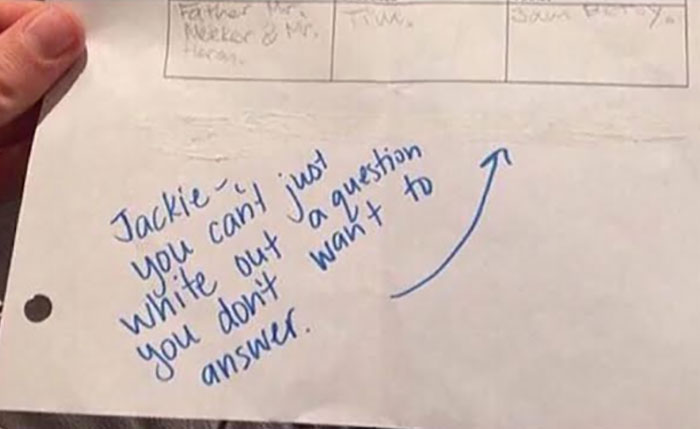 Father Mr.
Meeker & Mr.
Tim.
Jackie-
you can't just
white out a question
you don't want to
answer.